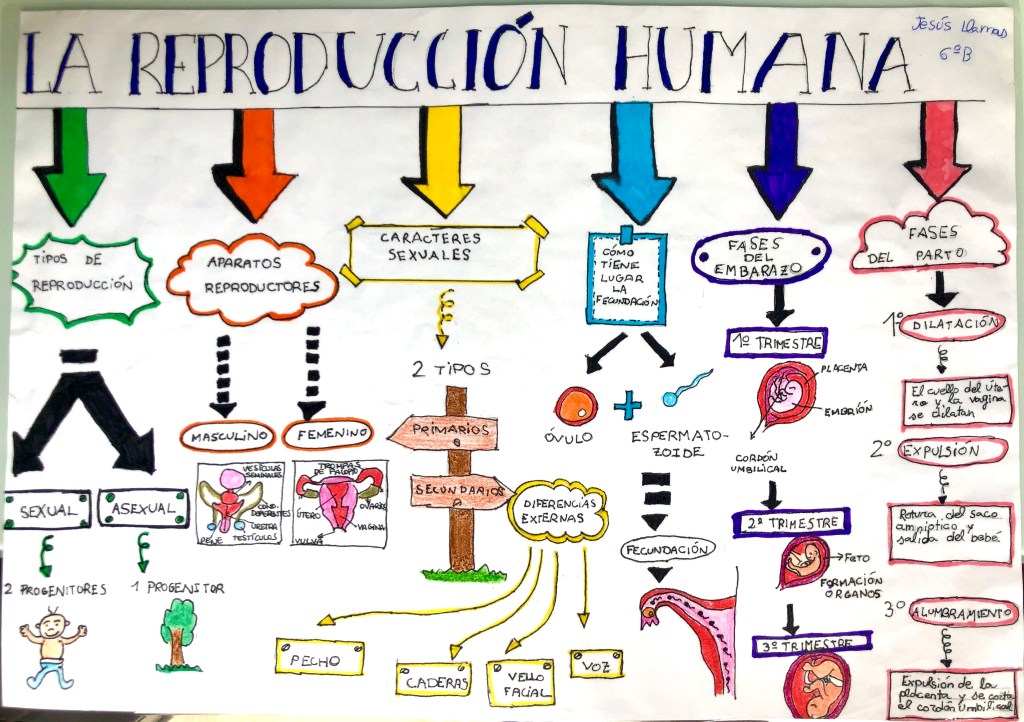 LA REPRODUCCIÓN HUMANA
Jesús Llamas
6ºB
TIPOS DE
REPRODUCCIÓN
SEXUAL
ASEXUAL
2 PROGENITORES
1 PROGENITOR
APARATOS
REPRODUCTORES
MASCULINO
FEMENINO
VESÍCULAS
SEMINALES
COND.
DEFERENTES
URETRA
PENE
TESTÍCULOS
TROMPAS
DE FALOPIO
OVARIOS
ÚTERO
VAGINA
VULVA
CARACTERES
SEXUALES
2 TIPOS
PRIMARIOS
SECUNDARIOS
DIFERENCIAS
EXTERNAS
PECHO
CADERAS
VELLO
FACIAL
VOZ
CÓMO
TIENE
LUGAR
LA
FECUNDACIÓN
ÓVULO
+
ESPERMATO-
ZOIDE
FECUNDACIÓN
FASES
DEL
EMBARAZO
1º TRIMESTRE
PLACENTA
EMBRIÓN
CORDÓN
UMBILICAL
2º TRIMESTRE
FETO
FORMACIÓN
ÓRGANOS
3º TRIMESTRE
FASES
DEL PARTO
1º DILATACIÓN
El cuello del úte-
ro y la vagina
se dilatan
2º EXPULSIÓN
Rotura del saco
amniótico y
salida del bebé.
3º ALUMBRAMIENTO
Expulsión de la
placenta y se corta
el cordón umbilical